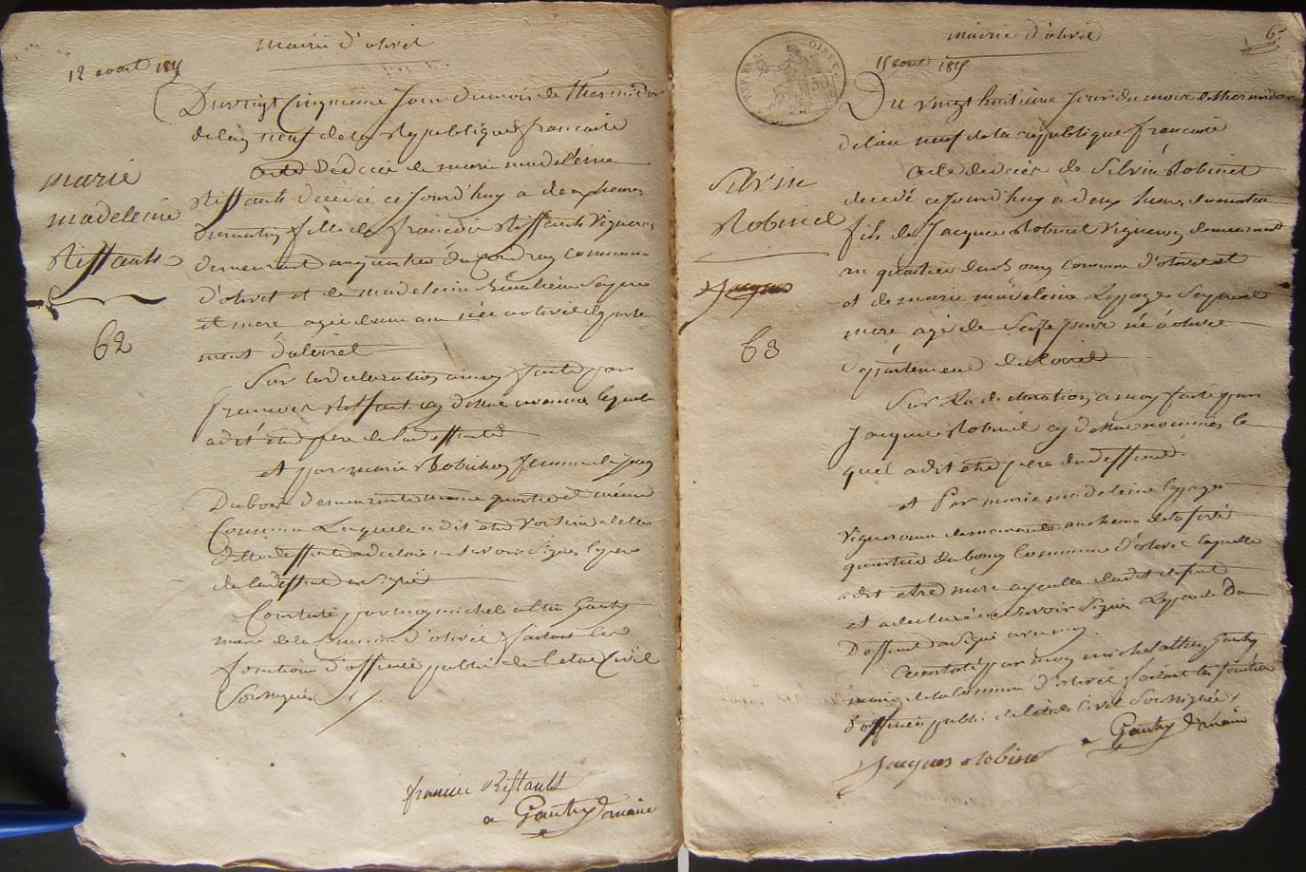 mairie d'olivet
12 aout
Du vingt Cinquieme Jour du mois de thermidor
de lan neuf de la Republique francaise
acte de decée de marie madeleine
Riffault decedée ce jourd'huy a heures
fille de francois Riffault Vigneron
demeurant au quartier du commune
d'olivet et de madeleine Ses pere
et mere agée d'un an née a olivet departe
ment du loiret
marie
madeleine
Riffault
62
Sur la declaration a moy faite par
francois Riffault cy dessus nommé lequel
a dit etre pere de la deffunte
et par marie Robichon femme de
Dubois demeurante meme quartier et meme
Commune Laquelle a dit etre Voisine de la
ditte deffunte a declaré ne Savoir Signer le pere
de la deffunte a Signé
Constaté par moy michel Gauthy
maire de la Commune d'olivet faisant les
fonctions d'officier public de letat Civil
Soussigné
francois Riffault
Gauthy maire
mairie d'olivet
6
15 aout
Du vingt huitieme jour du mois de thermidor
de lan neuf de la republique francaise
acte de decées de Silvin Robinet
decedé ce jourd'huy a deux heures du matin
fils de Jacques Robinet Vigneron demeurant
au quartier du bourg commune d'olivet
et de marie madeleine Lepage Ses pere et
mere agé de Sept jours né a olivet
departement du Loiret
Silvin
Robinet
Jacques
63
Sur La declaration a moy faite par
Jacques Robinet cy dessus nommé le
quel a dit etre pere du deffunt
et Par marie madeleine lepage
Vigneronne demeurante au
quartier du bourg Commune d'olivet laquelle
a dit etre mere dudit defunt
et a declaré ne Savoir Signer Le pere du
Deffunt a Signé avec moy.
Constaté par moy michel Gauthy
maire de la Commune d'olivet faisant les fonctions
d'officier public de letat Civil Soussigné
Jacques Robinet
Gauthy maire